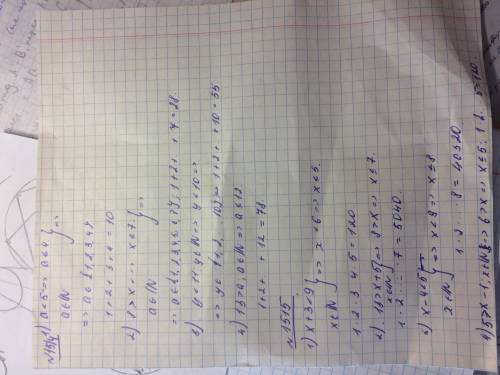 №1514 1) a<5 => a≤4 } =>
a∈ℕ
=> a∈{1,2,3,4}
1+2+3+4=10
2) 8>x ... x≤7 } =>
a∈ℕ
=> a∈{1,2,3,4,5,6,7}, 1+2+ +7=28.
3) y<11, y∈ℕ => y≤10 =>
=> y∈{1,2, 10} = 1+2+ +10=55.
4) 13>a, a∈ℕ => a≤12.
1+2+ +12=78
№1515
1) x+3<9 } => x<6 => x≤5.
x∈ℕ
1·2·3·4·5=120
2) 13>x+5 => 8>x => x≤7.
x∈ℕ
1·2·...·7=5040.
3) x-4<5 } => x<9 => x≤8
x∈ℕ
1·2·...·8=40320
4) 5>x-1, x∈ℕ => 6>x => x≤5. 1·2· 5=120.